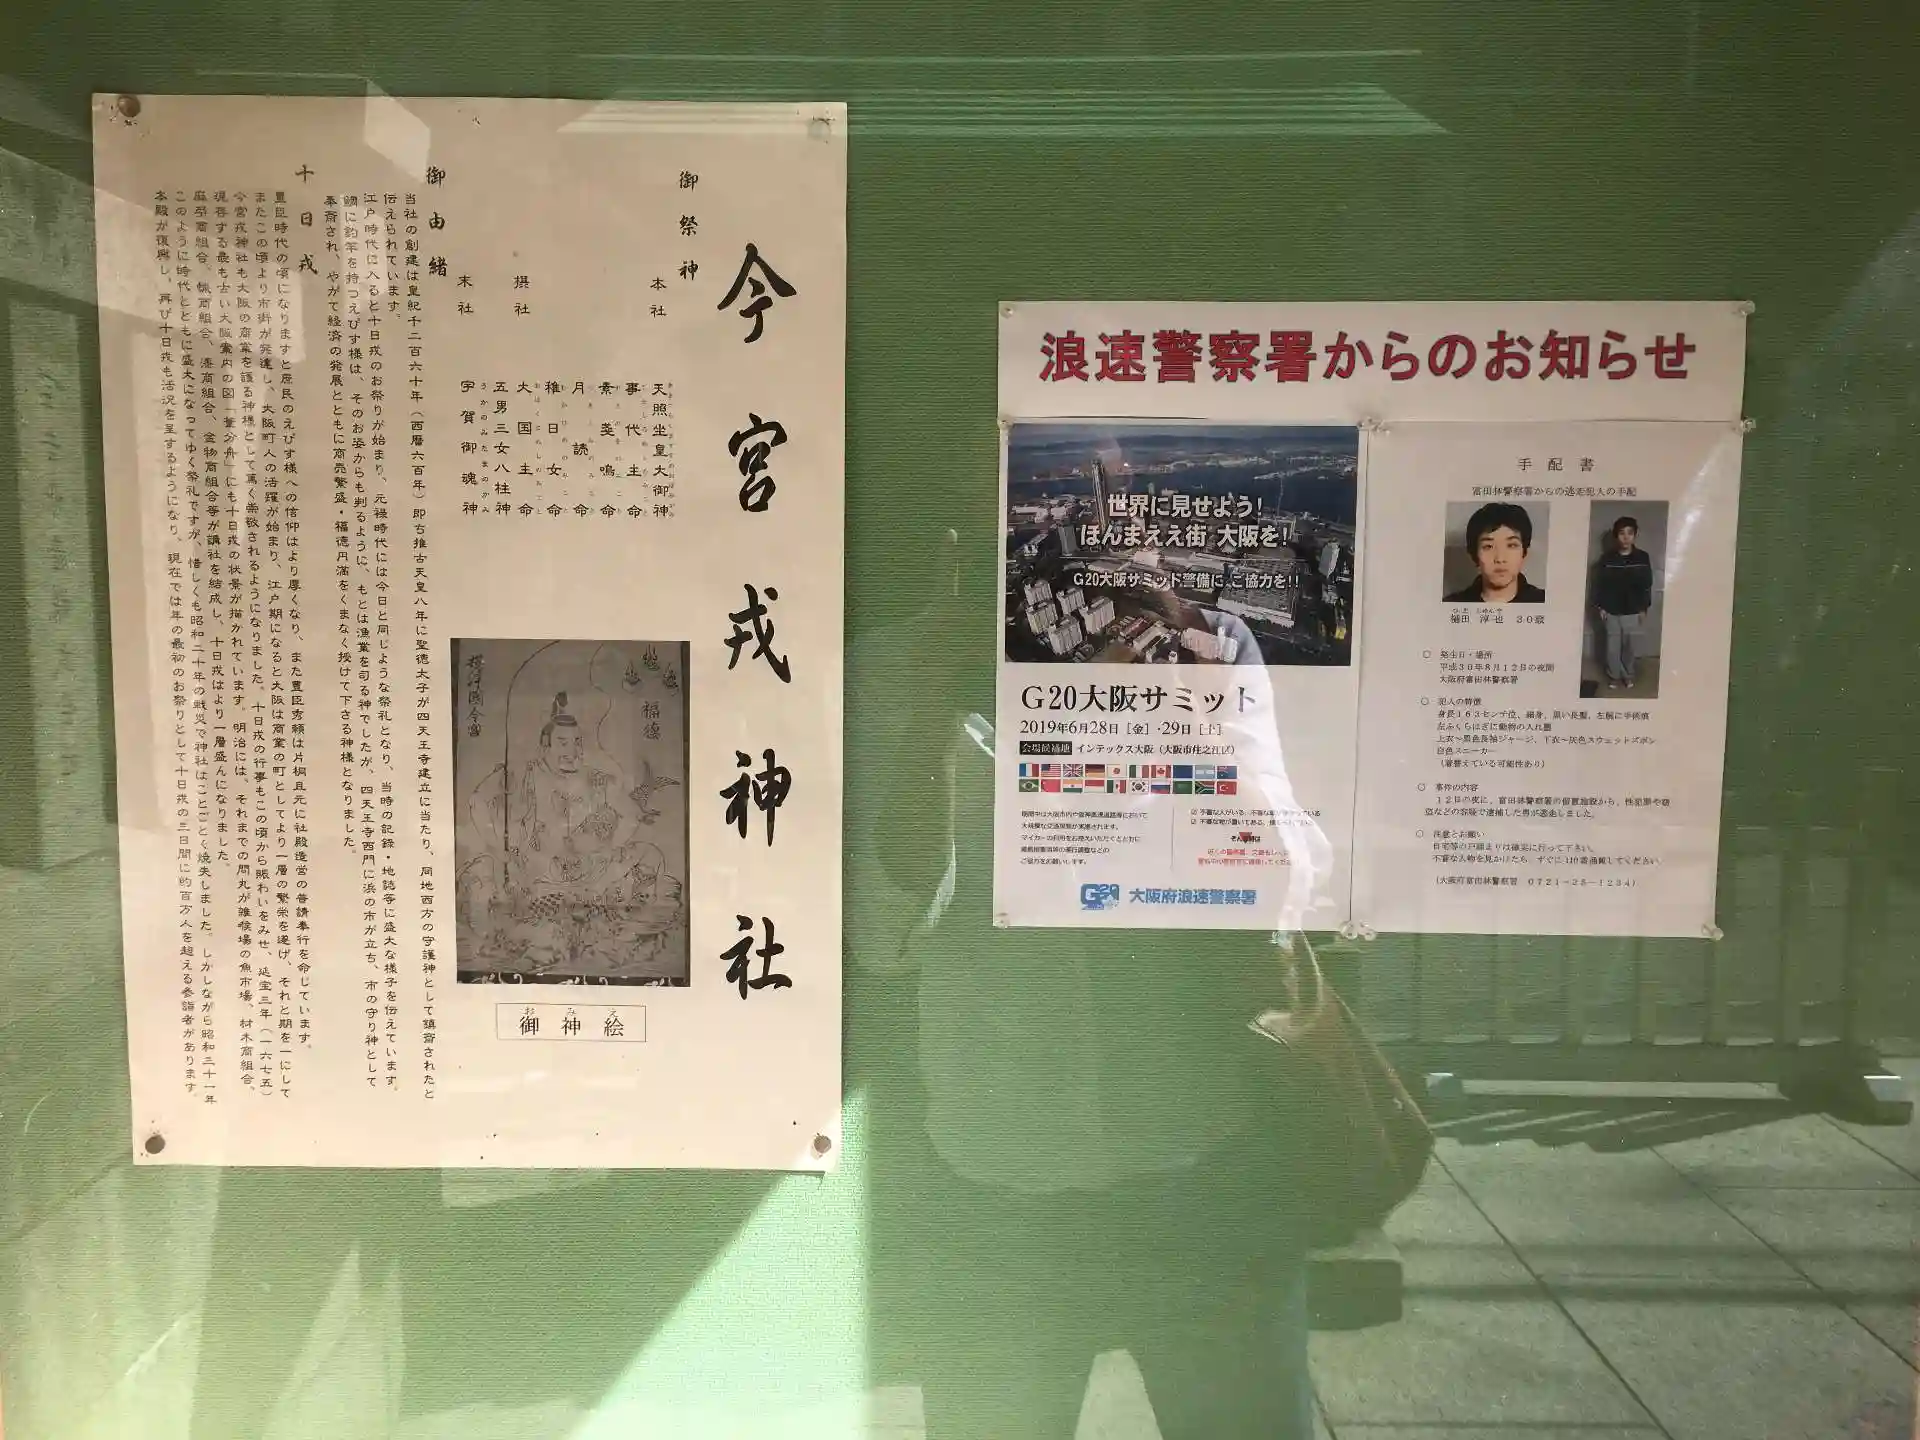 今宮戎神社
御祭神
本社
天照坐皇大御神
事代主命
素盞嗚命
月読命
稚日女命
摂社
大国主命
五男三女八柱神
末社
宇賀御魂神
御由緒
当社の創建は皇紀千二百六十年（西暦六百年）即ち推古天皇八年に聖徳太子が四天王寺建立に当たり、同地西方の守護神として鎮斎されたと
伝えられています。
江戸時代に入ると十日戎のお祭りが始まり、元禄時代には今日と同じような祭礼となり、当時の記録・地誌等に盛大な様子を伝えています。
鯛に釣竿を持つえびす様は、そのお姿からも判るように、もとは漁業を司る神でしたが、四天王寺西門に浜の市が立ち、市の守り神として
奉斎され、やがて経済の発展とともに商売繁盛・福徳円満をくまなく授けて下さる神様となりました。
十日戎
豊臣時代の頃になりますと庶民のえびす様への信仰はより厚くなり、また豊臣秀頼は片桐且元に社殿造営の普請奉行を命じています。
またこの頃より市街が発達し、大阪町人の活躍が始まり、江戸期になると大阪は商業の町としてより一層の繁栄を遂げ、それと期を一にして
今宮戎神社も大阪の商業を護る神様として篤く崇敬されるようになりました。十日戎の行事もこの頃から賑わいをみせ、延宝三年（一六七五）
現存する最も古い大阪案内の図「葦分舟」にも十日戎の状景が描かれています。明治には、それまでの問丸が雑喉場の魚市場、材木商組合、
麻苧商組合、蝋商組合、漆商組合、金物商組合等が講社を結成し、十日戎はより一層盛んになりました。
このように時代とともに盛大になってゆく祭礼ですが、惜しくも昭和二十年の戦災で神社はことごとく焼失しました。しかしながら昭和三十一年
本殿が復興し、再び十日戎も活況を呈するようになり、現在では年の最初のお祭りとして十日戎の三日間に約百万人を超える参詣者があります。
福徳
摂津國今宮
おみえ
御神絵
浪速警察署からのお知らせ
世界に見せよう！
ほんまええ街 大阪を！
G20大阪サミット警備に、ご協力を！！
G20大阪サミット
2019年6月28日［金］・29日［土］
会場候補地 インテックス大阪（大阪市住之江区）
期間中は大阪市内や阪神高速道路等において
大規模な交通規制が実施されます。
マイカーの利用をお控えいただくとともに
ご協力をお願いします。
☑ 不審な人がいる、不審な車が停まっている
そんな時は
G20 大阪府浪速警察署
手配書
富田林警察署からの逃走犯人の手配
ひだ じゅんや
樋田 淳也 30歳
○ 発生日・場所
平成30年8月12日の夜間
大阪府富田林警察署
○ 犯人の特徴
身長163センチ位、細身、黒い長髪、左腕に手術痕
左ふくらはぎに動物の入れ墨
上衣～黒色長袖ジャージ、下衣～灰色スウェットズボン
白色スニーカー
（着替えている可能性あり）
○ 事件の内容
12日の夜に、富田林警察署の留置施設から、性犯罪や窃
盗などの容疑で逮捕した男が逃走しました。
○ 注意とお願い
自宅等の戸締まりは確実に行って下さい。
不審な人物を見かけたら、すぐに110番通報してください。
（大阪府富田林警察署 0721－25－1234）